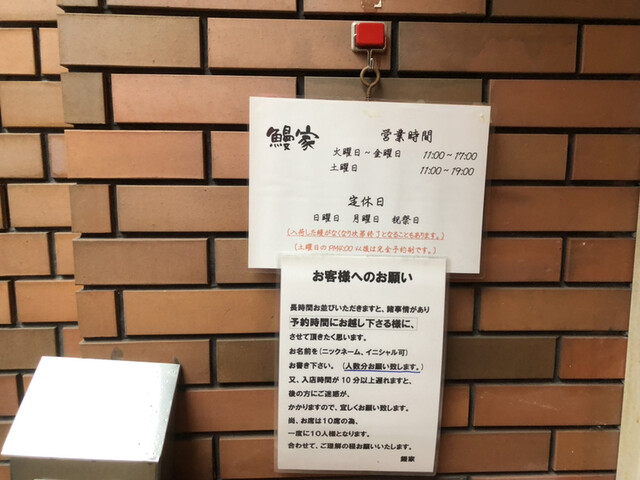 鰻家
営業時間
火曜日~金曜日 11:00~17:00
土曜日 11:00~19:00
定休日
日曜日 月曜日 祝祭日
(入荷した鰻がなくなり次第終了になることもあります。)
(土曜日のPM5:00以降は完全予約制です。)
お客様へのお願い
長時間お並びいただきますと、諸事情があり
予約時間にお越し下さる様に、
させて頂きたく思います。
お名前を(ニックネーム、イニシャル可)
お書き下さい。(人数分お願い致します。)
又、入店時間が10分以上遅れますと、
後の方にご迷惑が、
かかりますので、宜しくお願い致します。
尚、お席は10席の為、
一度に10人様となります。
合わせて、ご理解の程お願いいたします。
鰻家